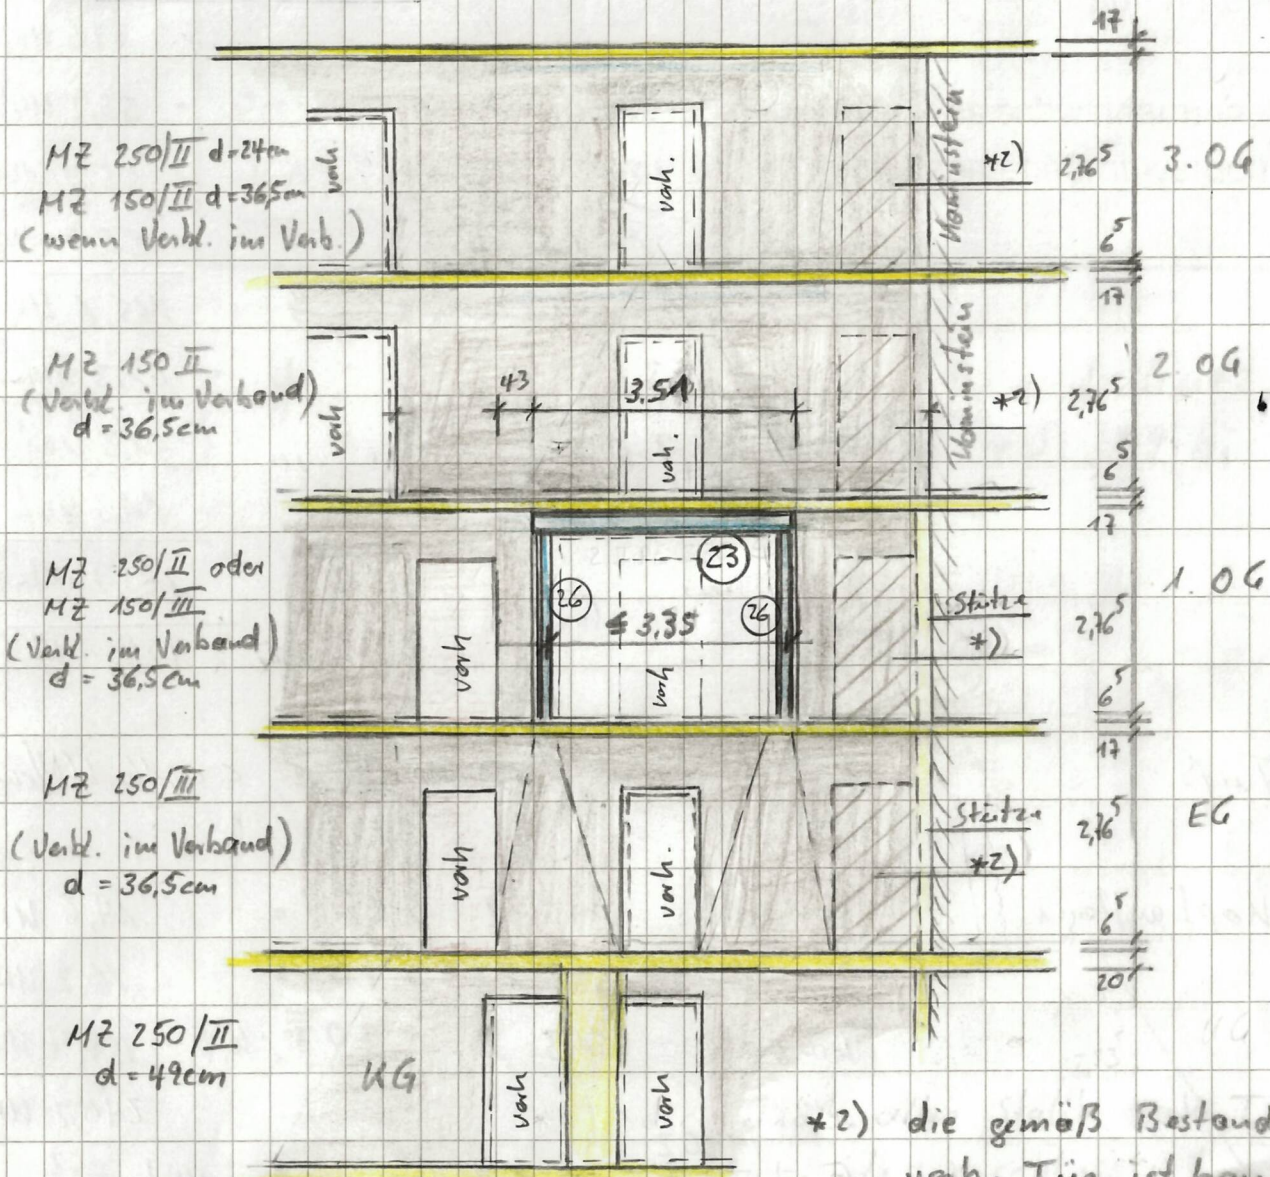 17
MZ 250/II d=24cm
MZ 150/II d=36,5cm
(wenn Verbl. im Verb.)
vorh.
vorh.
Kaminstein
*2)
2,76⁵
3.OG
6⁵
17
MZ 150 II
(Verbl. im Verband)
d = 36,5cm
vorh
43
3.51
vorh.
Kaminstein
*2)
2,76⁵
2.OG
6⁵
17
MZ 250/II oder
MZ 150/III
(Verbl. im Verband)
d = 36,5cm
vorh
26
23
26
3,35
vorh
Stütze
*)
2,76⁵
1.OG
6⁵
17
MZ 250/III
(Verbl. im Verband)
d = 36,5cm
vorh
vorh.
Stütze
*2)
2,76⁵
EG
6⁵
20
MZ 250/II
d = 49cm
KG
vorh
vorh
*2) die gemäß Bestand
vorh. Tür ist